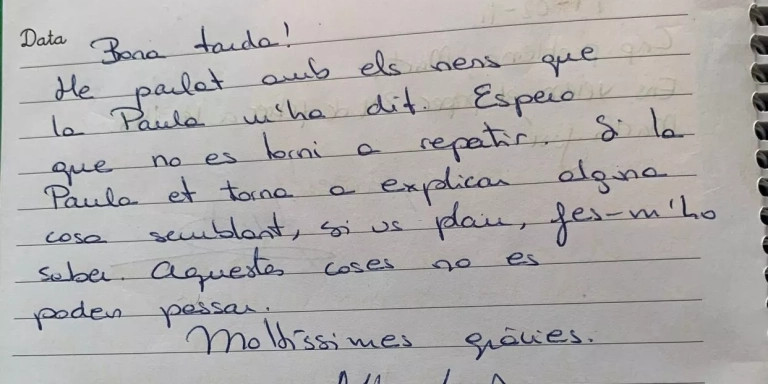 Data Bona tarda!
He parlat amb els nens que
la Paula m'ha dit. Espero
que no es torni a repetir. Si la
Paula et torna a explicar alguna
cosa semblant, si us plau, fes-m'ho
saber. Aquestes coses no es
poden passar.
Moltíssimes gràcies.